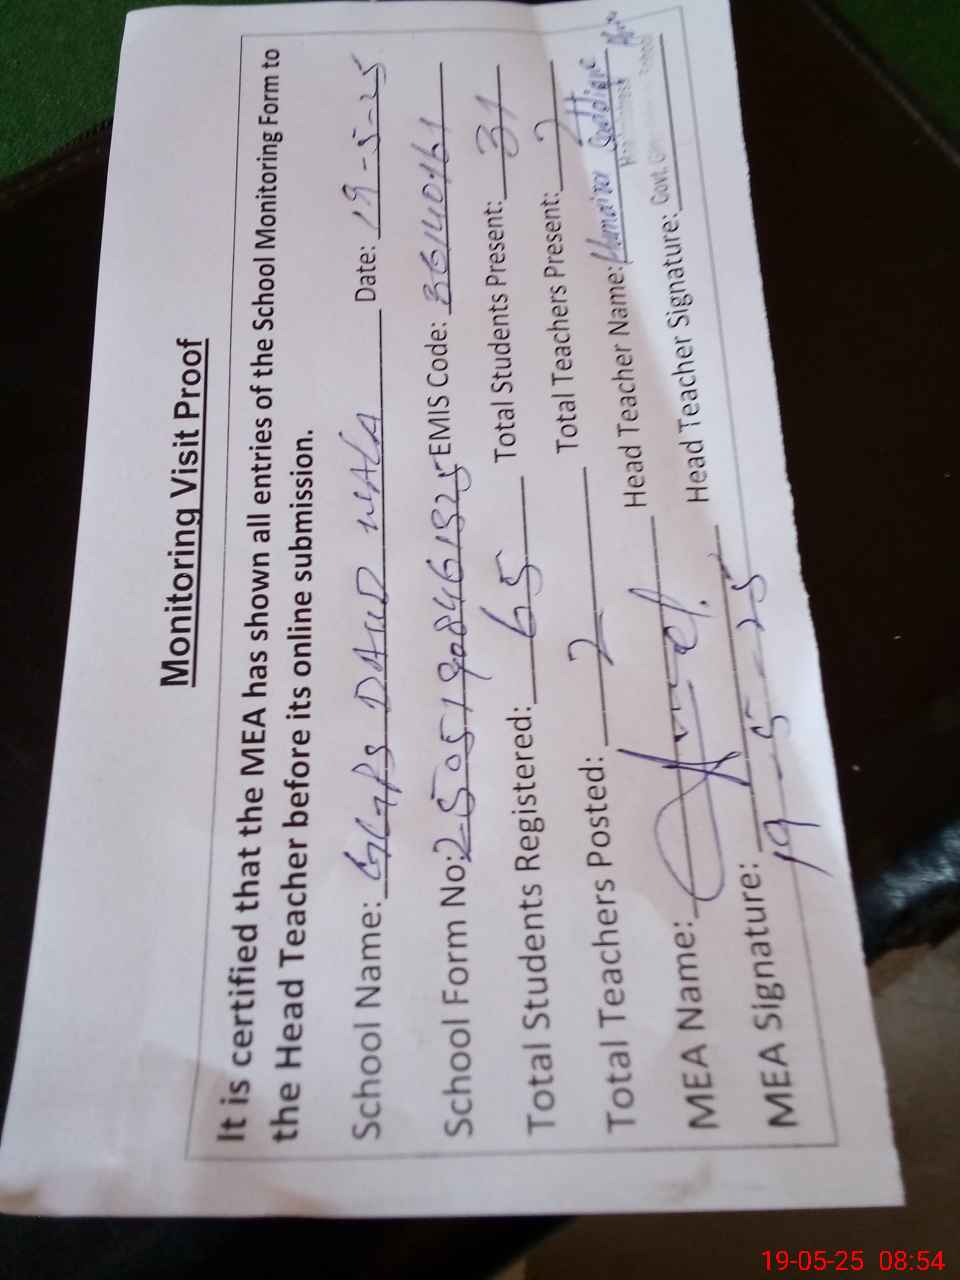 Monitoring Visit Proof
It is certified that the MEA has shown all entries of the School Monitoring Form to
the Head Teacher before its online submission.
School Name: GGPS DAUD WALA Date: 19-5-25
School Form No: 250519084618325 EMIS Code: 36140161
Total Students Registered: 65 Total Students Present: 31
Total Teachers Posted: 2 Total Teachers Present: 2
MEA Name: Head Teacher Name: Humaira
MEA Signature: Head Teacher Signature: Govt.
19-5-25
19-05-25 08:54